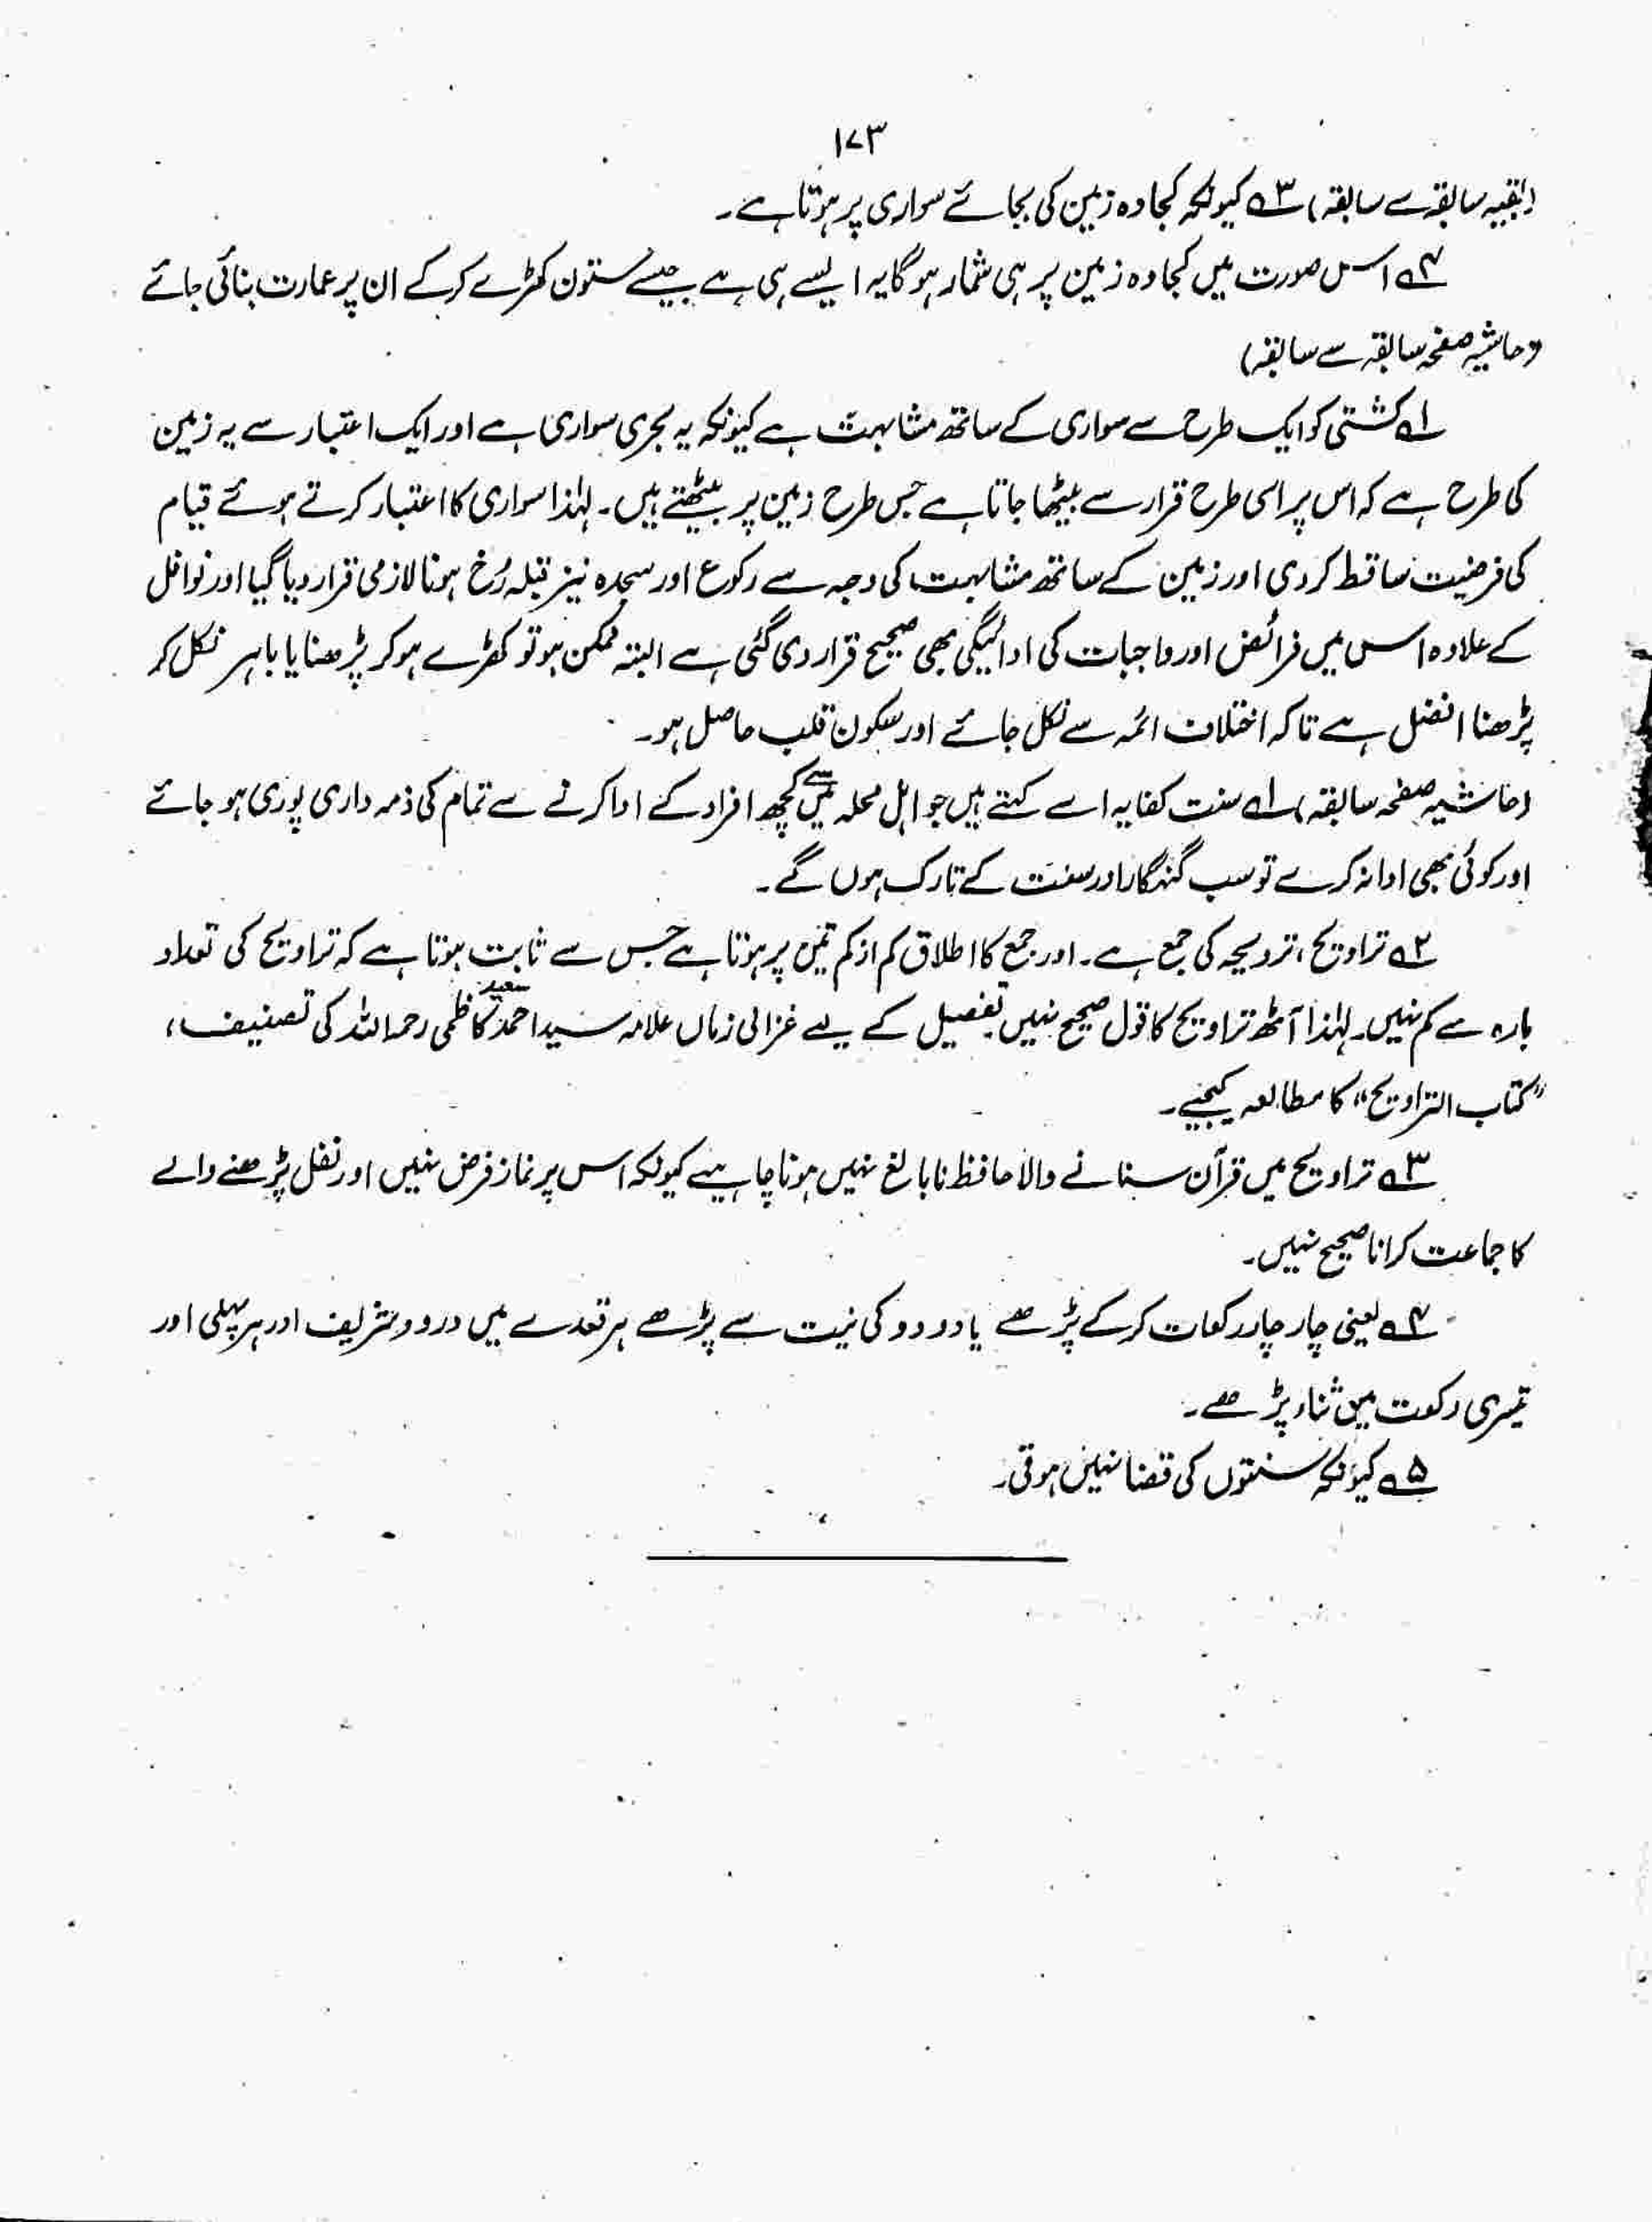 ۱۷۳
(بقیہ سابقہ سے سابقہ) ۳؎ کیونکہ کجاوہ زمین کی بجائے سواری پر ہوتا ہے۔
۴؎ اس صورت میں کجاوہ زمین پر ہی شمار ہوگا یہ ایسے ہی ہے جیسے ستون کھڑے کرکے ان پر عمارت بنائی جائے
(حاشیہ صفحہ سابقہ سے سابقہ)
۱؎ کشتی کو ایک طرح سے سواری کے ساتھ مشابہت ہے کیونکہ یہ بحری سواری ہے اور ایک اعتبار سے یہ زمین
کی طرح ہے کہ اس پر اسی طرح قرار سے بیٹھا جاتا ہے جس طرح زمین پر بیٹھتے ہیں۔ لہٰذا سواری کا اعتبار کرتے ہوئے قیام
کی فرضیت ساقط کر دی اور زمین کے ساتھ مشابہت کی وجہ سے رکوع اور سجدہ نیز قبلہ رُخ ہونا لازمی قرار دیا گیا اور نوافل
کے علاوہ اس میں فرائض اور واجبات کی ادائیگی بھی صحیح قرار دی گئی ہے البتہ ممکن ہو تو کھڑے ہوکر پڑھنا یا باہر نکل کر
پڑھنا افضل ہے تاکہ اختلاف ائمہ سے نکل جائے اور سکون قلب حاصل ہو۔
(حاشیہ صفحہ سابقہ) ۱؎ سنت کفایہ اسے کہتے ہیں جو اہل محلہ میں سے کچھ افراد کے ادا کرنے سے تمام کی ذمہ داری پوری ہو جائے
اور کوئی بھی ادا نہ کرے تو سب گنہگار اور سنت کے تارک ہوں گے۔
۲؎ تراویح، ترویحہ کی جمع ہے۔ اور جمع کا اطلاق کم از کم تین پر ہوتا ہے جس سے ثابت ہوتا ہے کہ تراویح کی تعداد
بارہ سے کم نہیں۔ لہٰذا آٹھ تراویح کا قول صحیح نہیں تفصیل کے لیے غزالی زماں علامہ سید احمد سعید کاظمی رحمہ اللہ کی تصنیف،
”کتاب التراویح“ کا مطالعہ کیجیے۔
۳؎ تراویح میں قرآن سنانے والا حافظ نابالغ نہیں ہونا چاہیے کیونکہ اس پر نماز فرض نہیں اور نفل پڑھنے والے
کا جماعت کرانا صحیح نہیں۔
۴؎ یعنی چار چار رکعات کرکے پڑھے یا دو دو کی نیت سے پڑھے ہر قعدے میں درود شریف اور ہر پہلی اور
تیسری رکعت میں ثناء پڑھے۔
۵؎ کیونکہ سنتوں کی قضا نہیں ہوتی۔